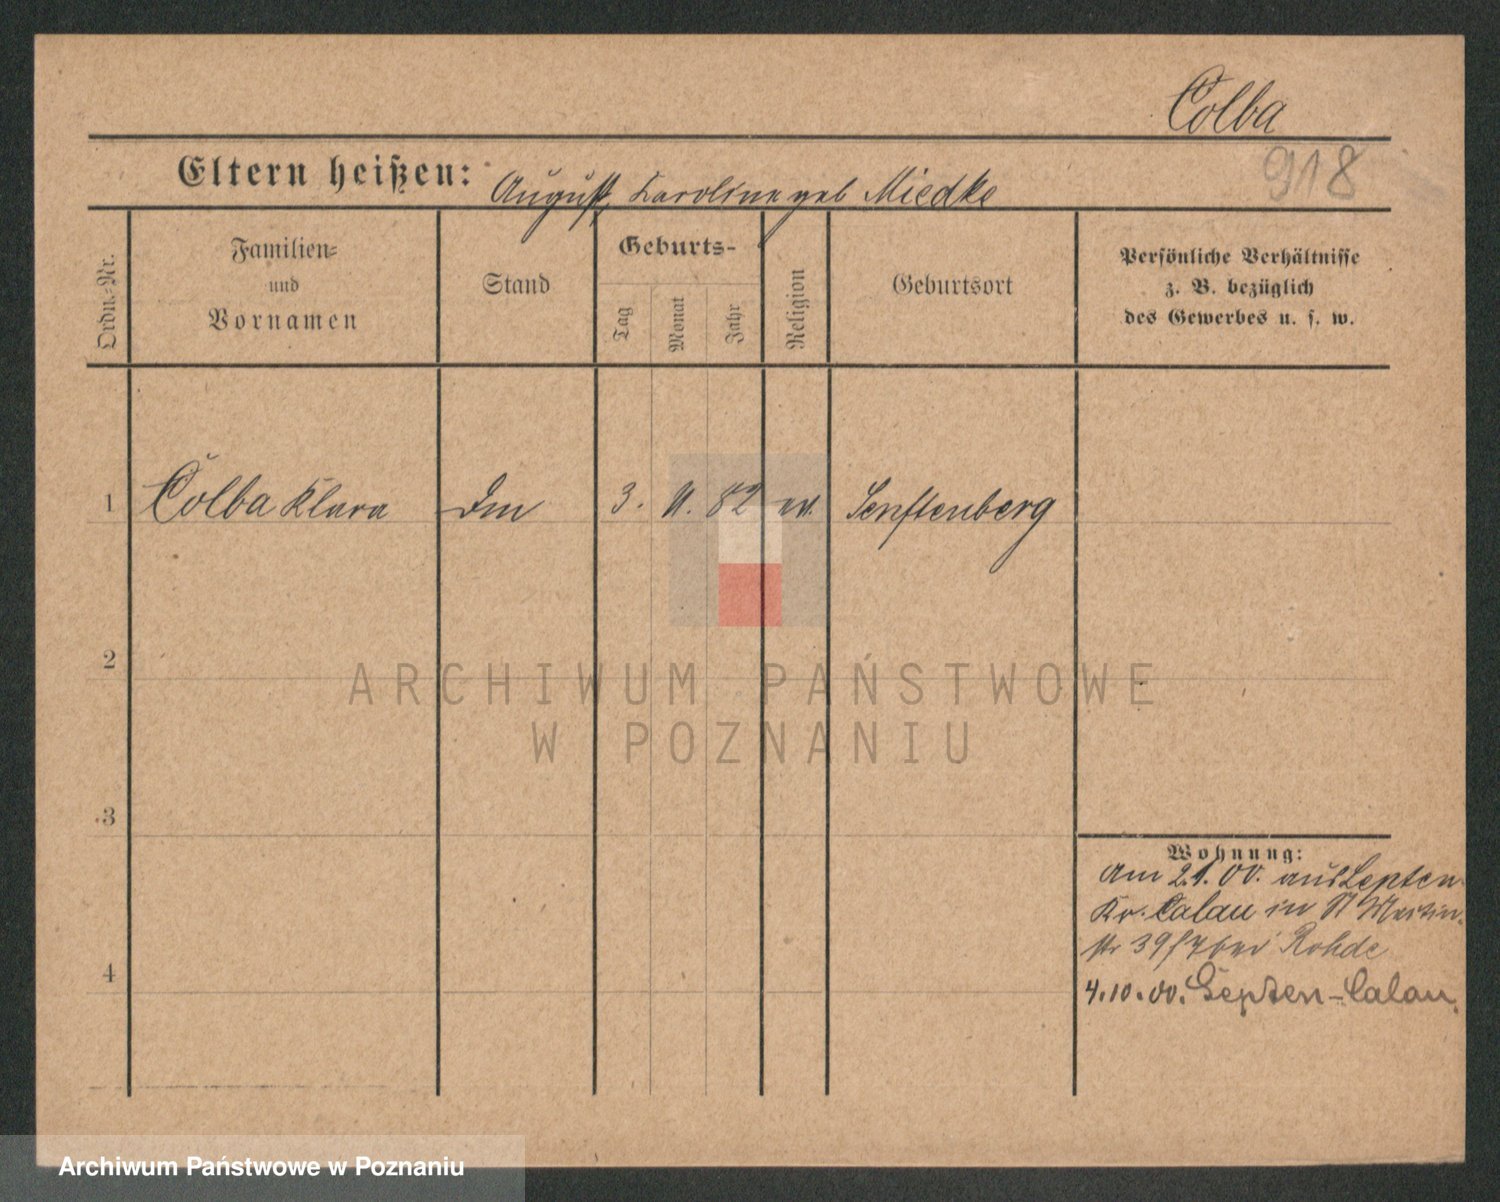 Colba
918
Eltern heißen: August, Karoline geb Miedke
Ordn.-Nr.
Familien-
und
Vornamen
Stand
Geburts-
Tag
Monat
Jahr
Religion
Geburtsort
Persönliche Verhältnisse
z. B. bezüglich
des Gewerbes u. s. w.
1 Colba Klara 3. 82 ev. Senftenberg
2
ARCHIWUM PAŃSTWOWE
W POZNANIU
3
Wohnung:
Am 2.1.00. aus Septen
Kr. Calau in St Martin-
str 39 bei Rohde
4
4.10.00. Septen-Calau.
Archiwum Państwowe w Poznaniu